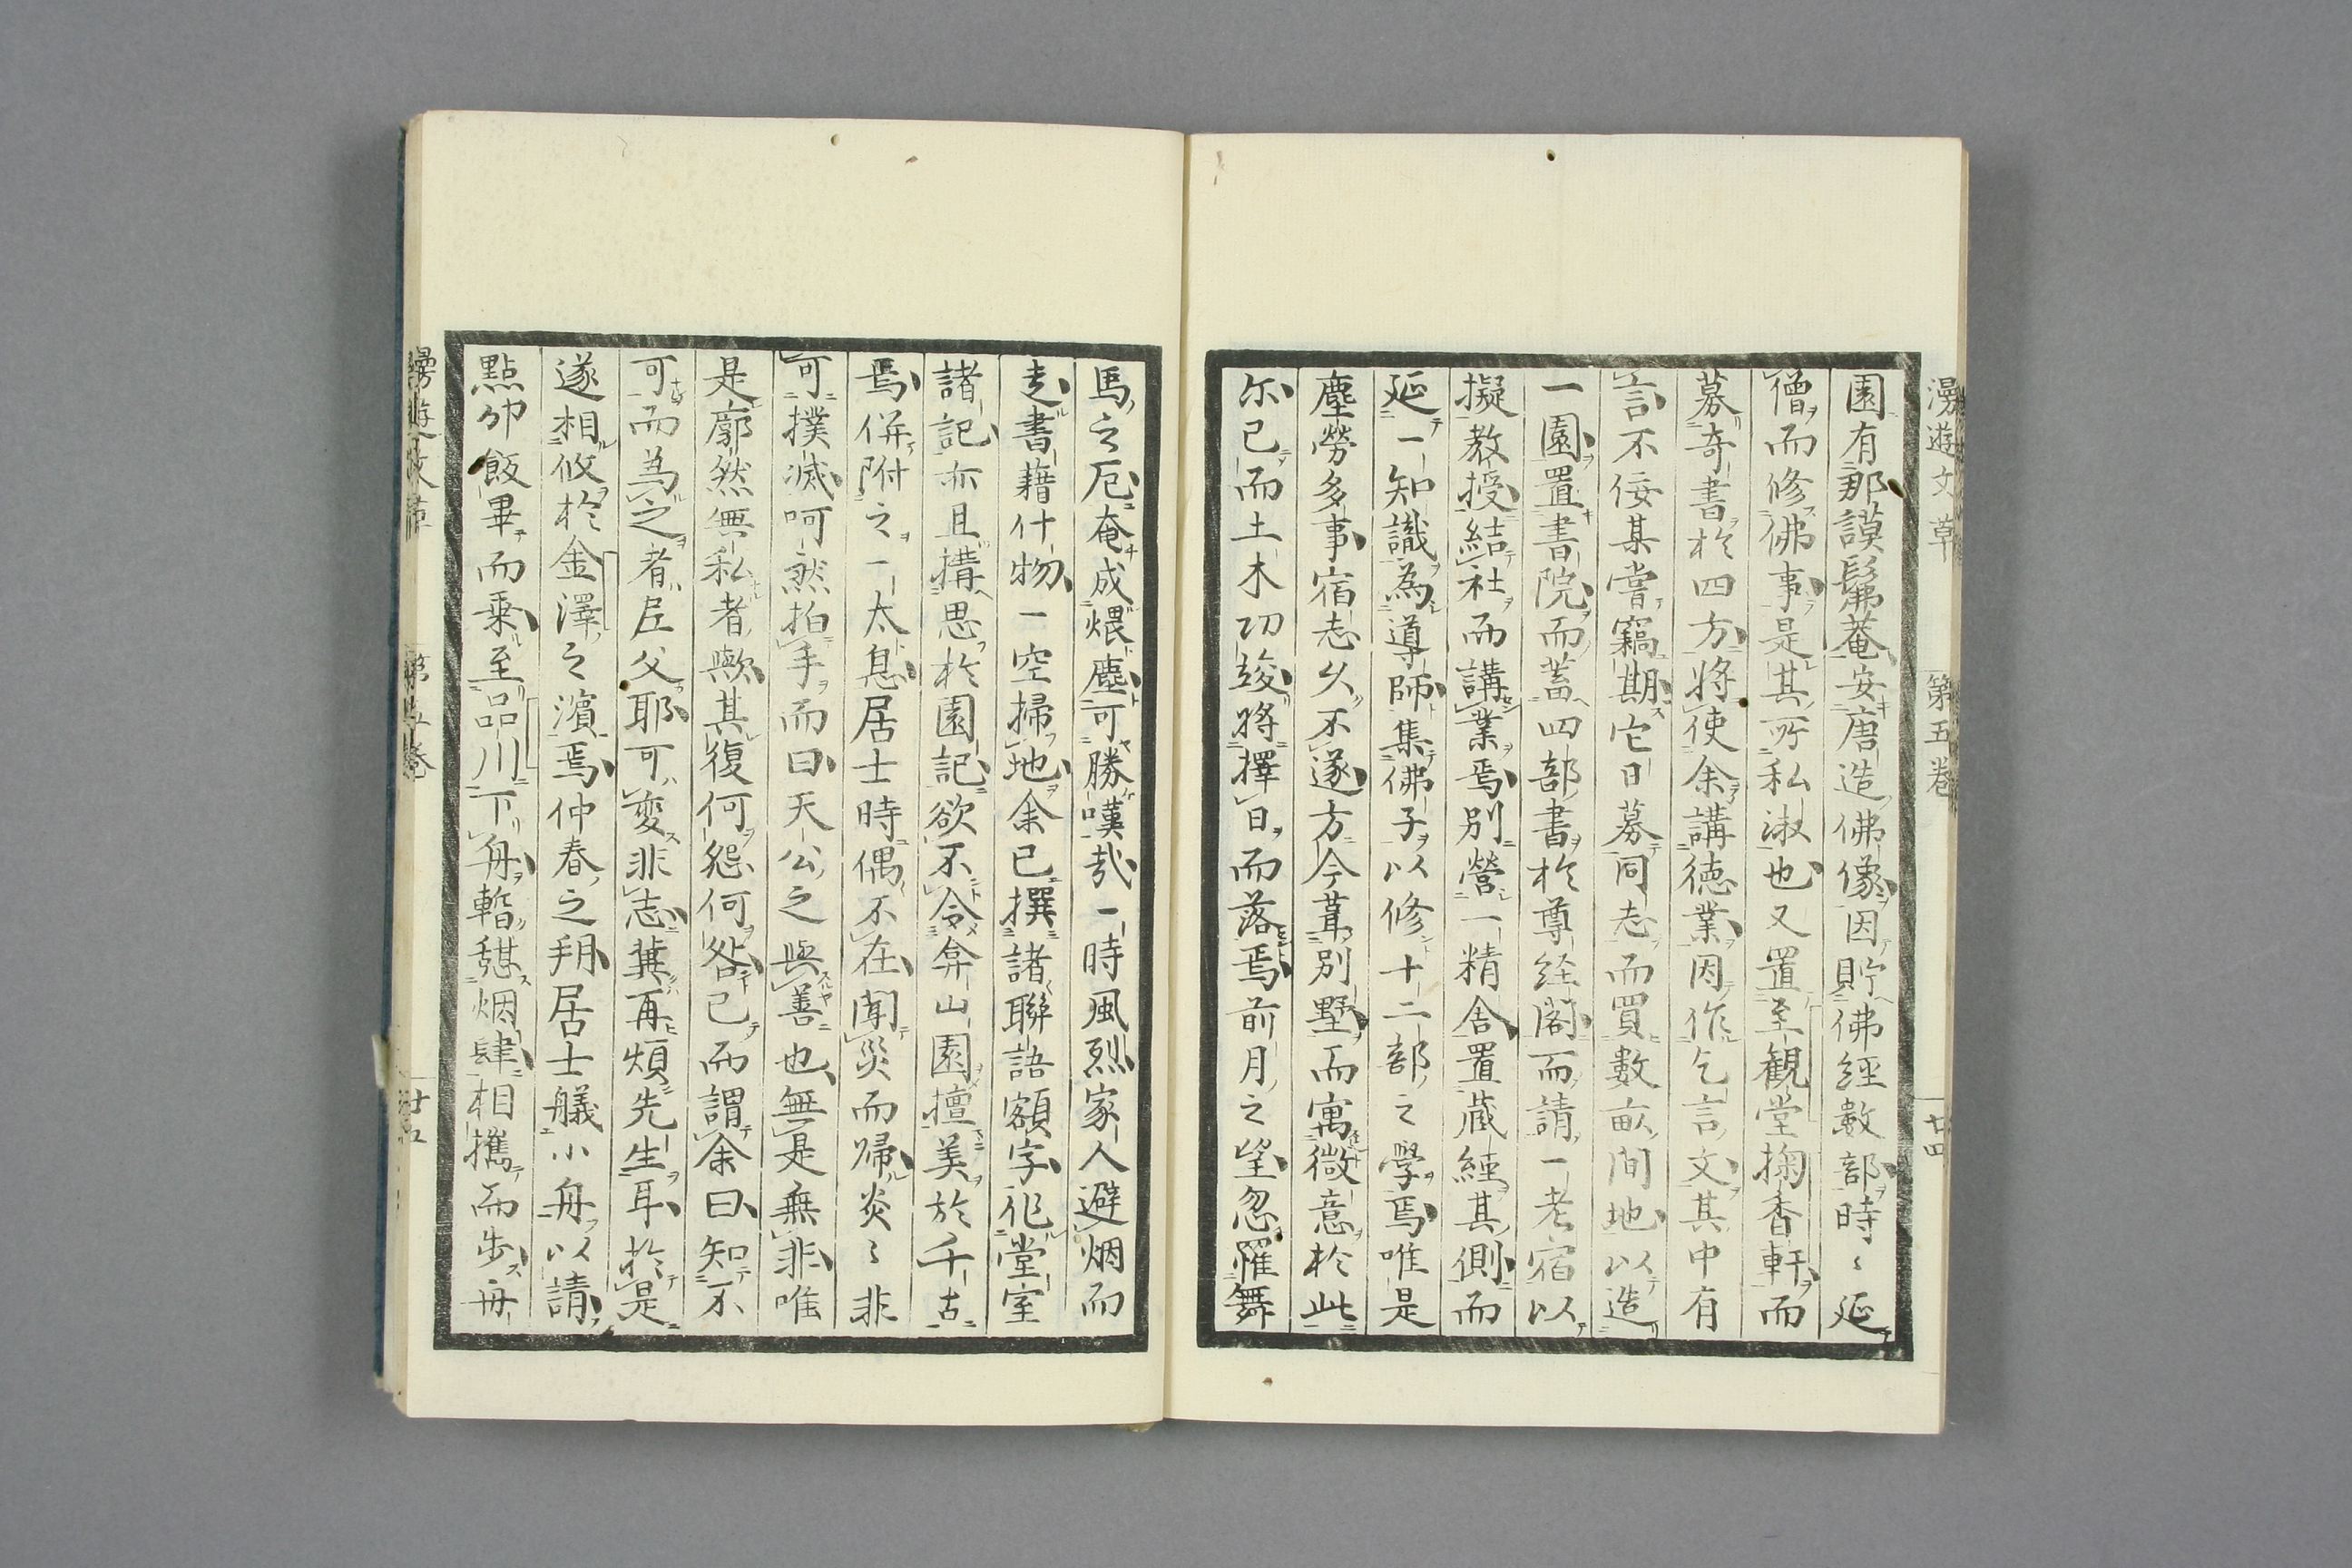 漫遊文草 第五卷 廿四
園有那謨髴菴安唐造佛像因貯佛經數部時〻延
僧而修佛事是其所私淑也又置至観堂掬香軒而
募奇書於四方將使余講徳業因作乞言文其中有
言不佞某嘗竊期它日募同志而買數畝間地以造
一園置書院而蓄四部書於尊経閣而請一老宿以
擬教授結社而講業焉別營一精舎置蔵經其側而
延一知識為導師集佛子以修十二部之學焉唯是
塵勞多事宿志久不遂方今葺別墅而寓微意於此
尓已而土木切竣将擇日而落焉前月之望忽罹舞
馬之厄奄成煨塵可勝嘆哉一時風烈家人避烟而
走書藉什物一空掃地余已撰諸聯語額字化堂室
諸記亦且搆思於園記欲不令弇山園擅美於千古
焉併附之一太息居士時偶不在聞災而歸炎〻非
可撲滅呵然拍手而曰天公之與善也無是無非唯
是廓然無私者歟其復何怨何咎已而謂余曰知不
可而為之者尼父耶可変非志冀再煩先生耳於是
遂相攸於金澤之濱焉仲春之朔居士艤小舟以請
點卯飯畢而乗至品川下舟暫憇烟肆相携而歩舟
漫遊文草 第五卷 廿五